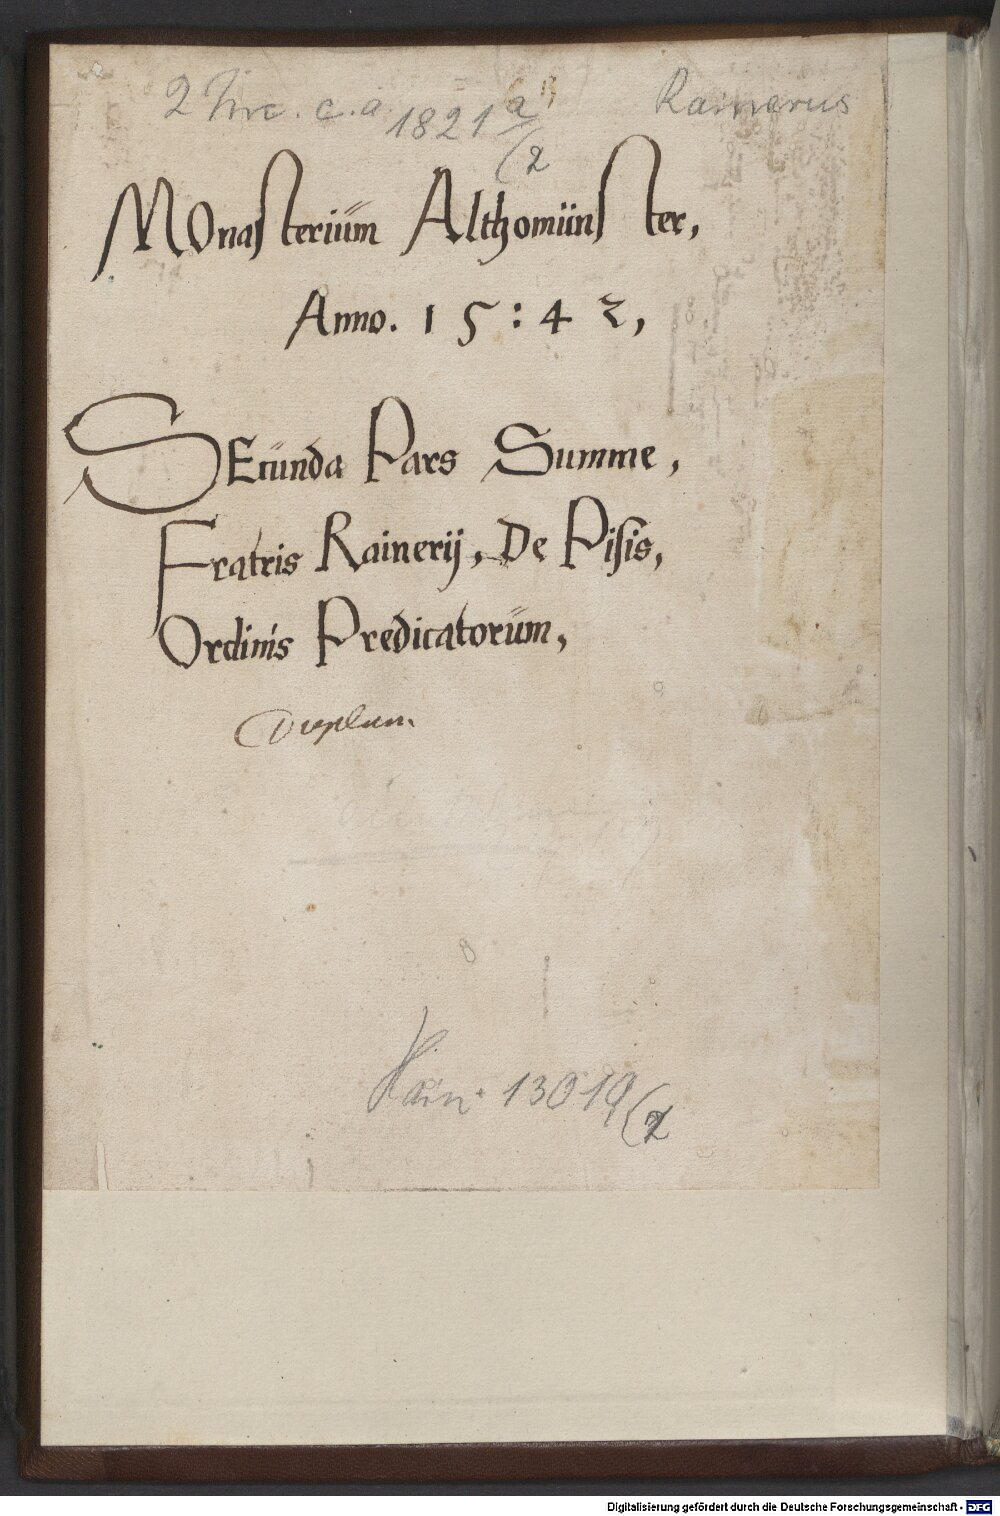 2 Inc. c. a. 1821 a
(2
Rainerus
MOnasterium Althomünster,
Anno. 15:42,
SEcunda Pars Summe,
Fratris Rainerij, De Pisis,
Ordinis Predicatorum,
Duplum
Hain. 13019 (2
Digitalisierung gefördert durch die Deutsche Forschungsgemeinschaft - DFG